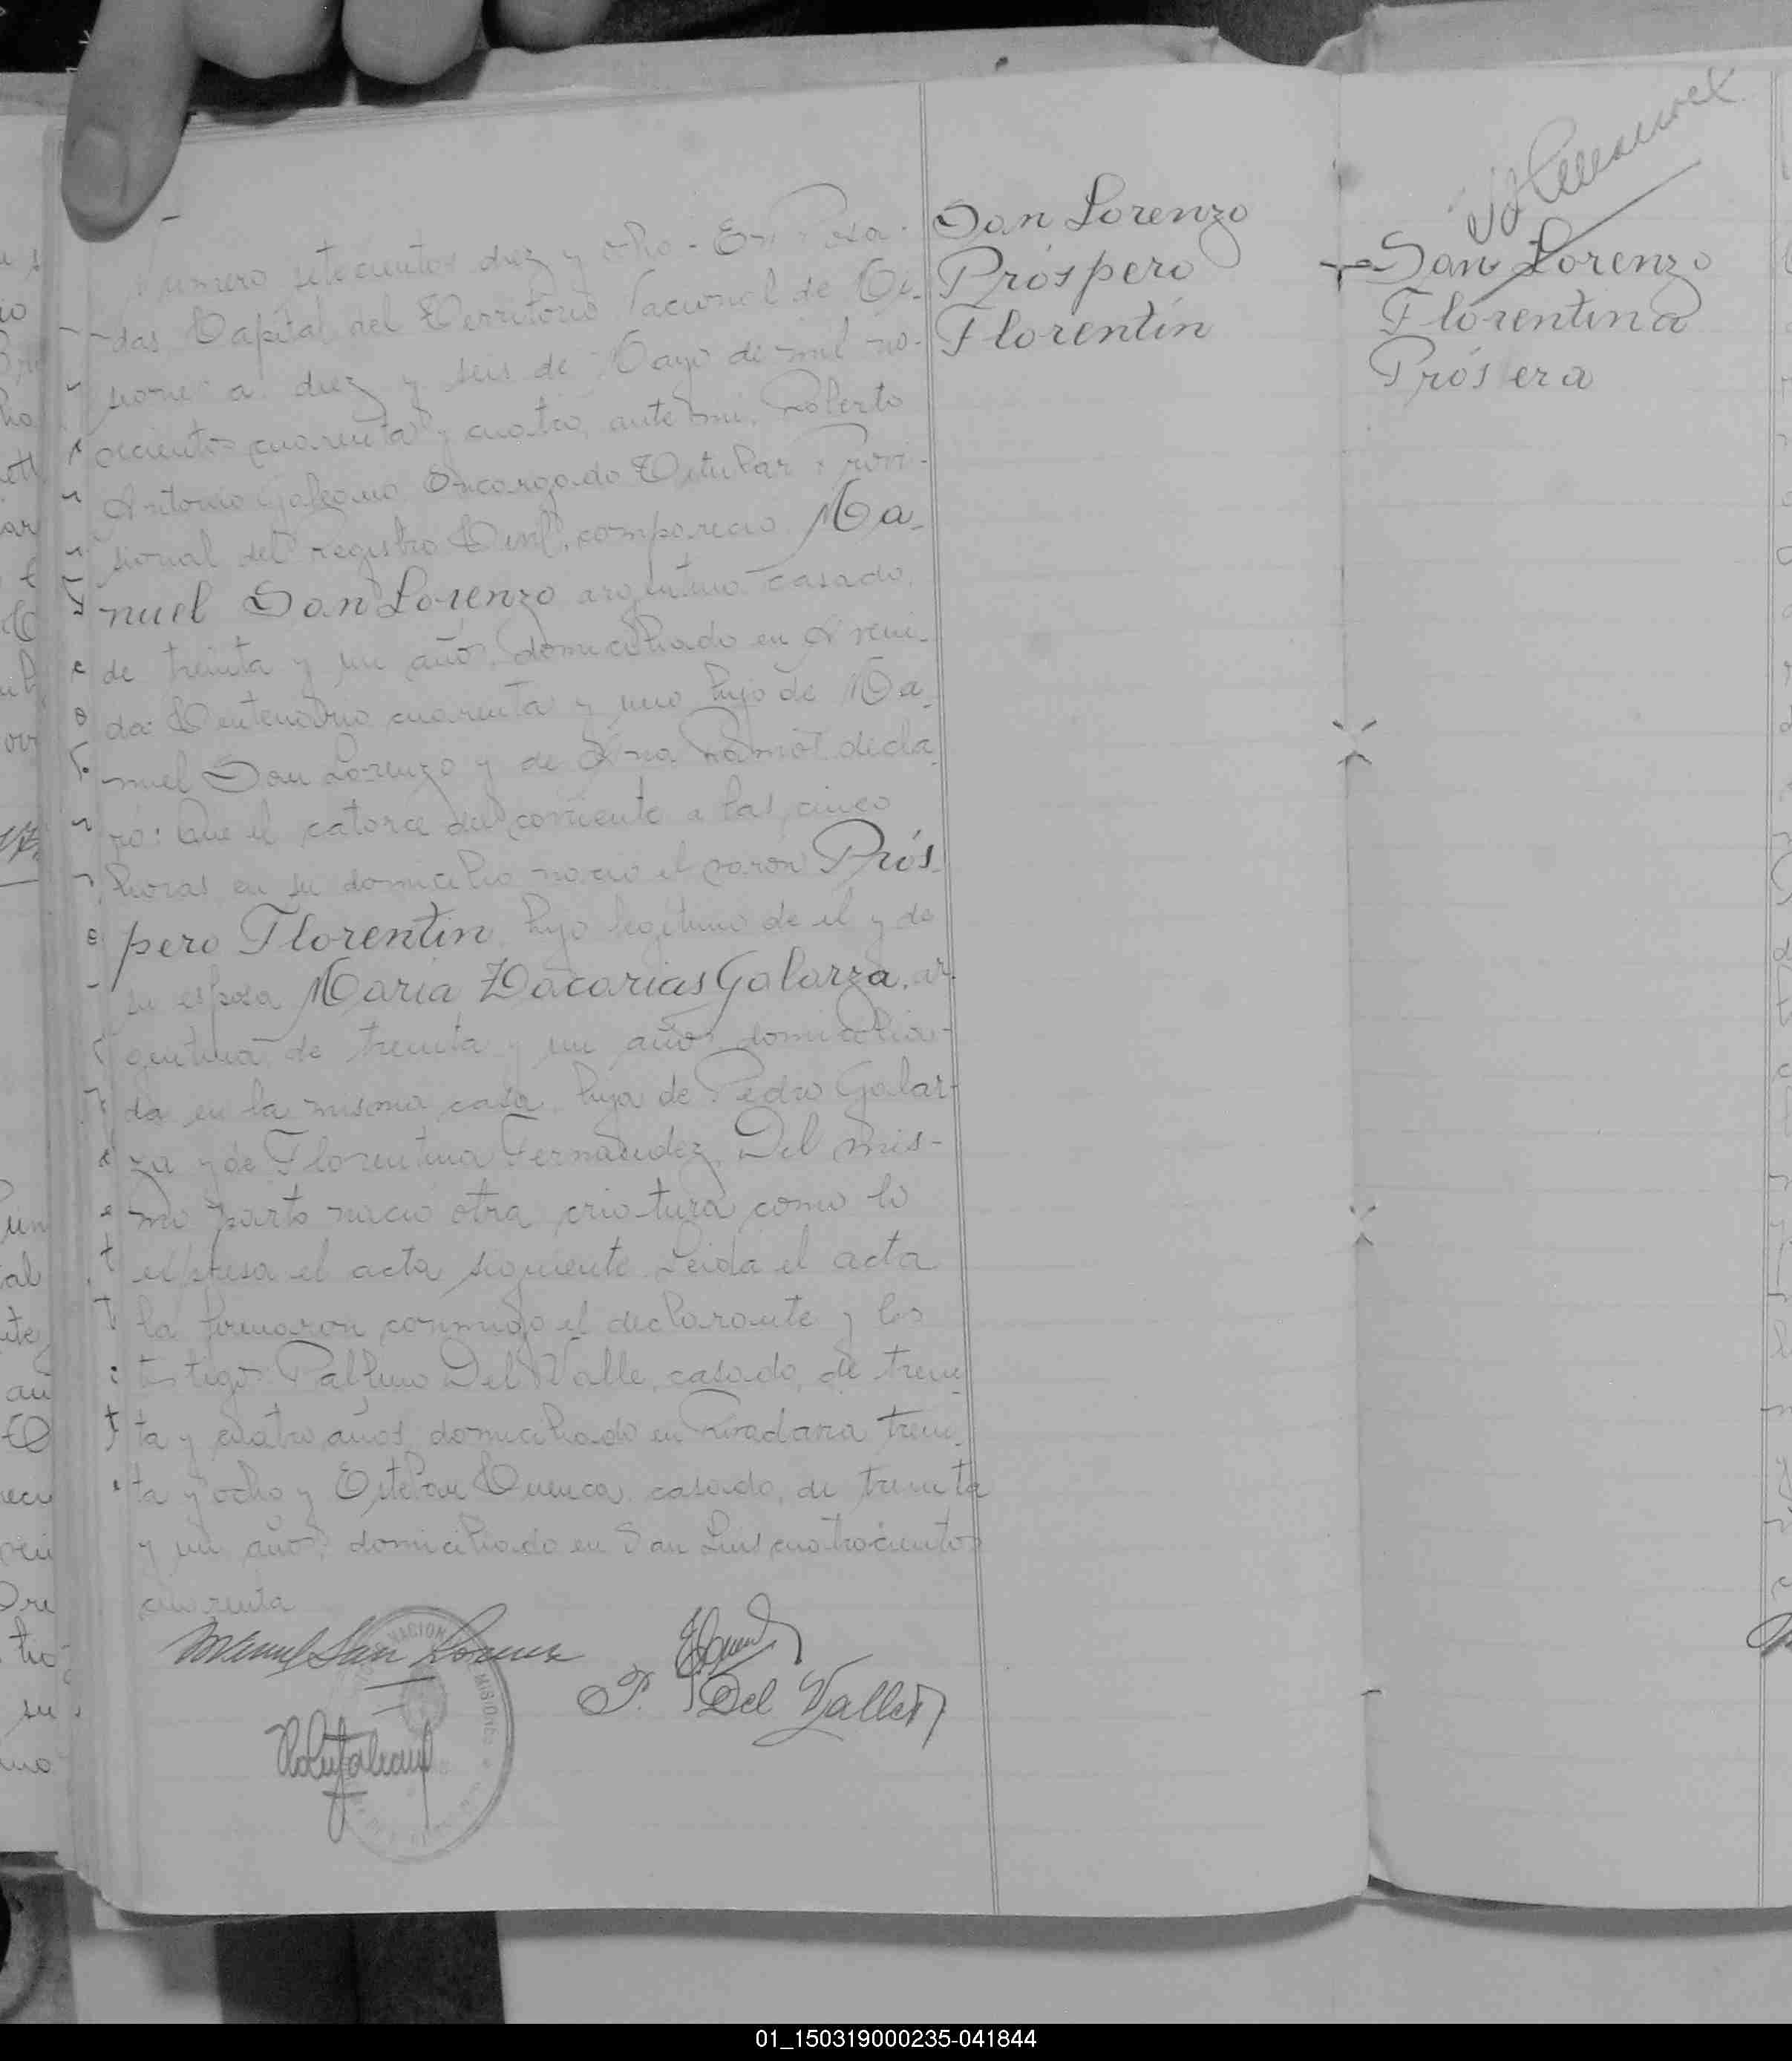 Número setecientos diez y ocho - En Posa-
das Capital del Territorio Nacional de Mi-
siones a diez y seis de Mayo de mil no-
vecientos cuarenta y cuatro, ante mi, Roberto
Antonio Galeano Encargado Titular Provi-
sional del registro Civil, comparecio Ma-
nuel San Lorenzo argentino casado,
de treinta y un años, domiciliado en Aveni-
da Centenario cuarenta y uno hijo de Ma-
nuel San Lorenzo y de Ana Ramos decla-
ró: Que el catorce del corriente a las cinco
horas en su domicilio nacio el varon Prós-
pero Florentin hijo legitimo de el y de
su esposa Maria Zacarias Galarza, ar-
gentina de treinta y un años domicilia-
da en la misma casa, hija de Pedro Galar-
za y de Florentina Fernandez. Del mis-
mo parto nacio otra criatura como lo
expresa el acta siguiente. Leida el acta
la firmaron conmigo el declarante y los
testigos Del Valle, casado, de trein-
ta y cuatro años domiciliado en Rivadavia trein-
ta y ocho y Esteban Cuenca, casado, de treinta
y un años, domiciliado en San Luis cuatrocientos
cuarenta
San Lorenzo
Próspero
Florentin
Manuel San Lorenzo
P. Del Valle
NACION
MISIONES
San Lorenzo
Florentina
Prósera
01_150319000235-041844